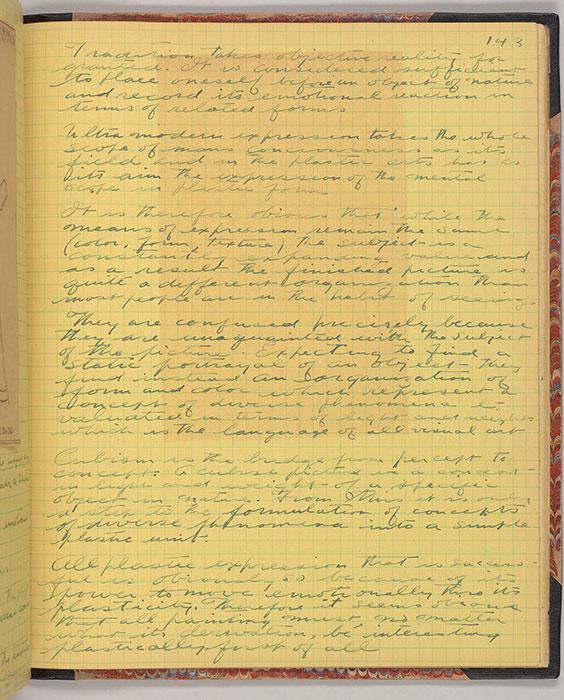 143
Tradition takes objective reality for
granted. It is considered sufficient
to place oneself before an object of nature
and record its emotional reaction in
terms of related forms
Ultra modern expression takes the whole
scope of mans conciousness as its
field and in the plastic arts has as
its aim the expression of the mental
scope in plastic form
It is therefore obvious that while the
means of expression remain the same
(color, form, texture) the subject is a
constantly expanding value and
as a result the finished picture is
quite a different organization than
most people are in the habit of seeing
They are confused precisely because
they are unaquainted with the subject
of the picture. Expecting to find a
static portrayal of an object they
find instead an organization of
form and color which represents a
concept of diverse phenomena
in terms of light and weight
which is the language of all visual art
Cubism is the bridge from percept to
concept. A cubist picture is a concept
in light and weight of a specific
object in nature. From this it is only
a step to the formulation of concepts
of diverse phenomena into a simple
plastic unit.
All plastic expression that is success-
ful is obviously so because of its
power to move emotionally thro its
plasticity. Therefore it seems obvious
that all painting must, no matter
what its derivation, be interesting
plastically first of all